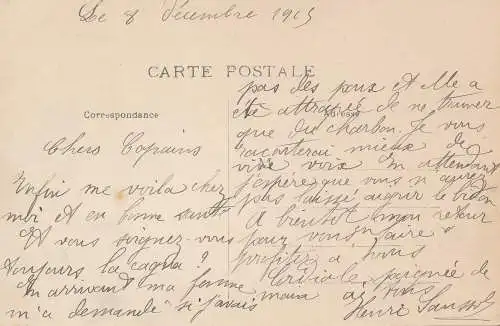 Le 8 décembre 1915
CARTE POSTALE
Correspondance
Adresse
Chers Copains
Enfin me voila chez
moi et en bonne santé
Et vous soignez-vous
toujours la cagna ?
En arrivant ma femme
m'a demandé si j'avais
pas des poux et elle a
été attrapée de ne trouver
que du charbon. Je vous
raconterai mieux de
vive voix En attendant
j'espère que vous n'aurez
pas laissé aigrir le bidon
A bientot mon retour
pour vous en faire
profiter à vous
Cordiale poignée de
main à vous
Henri